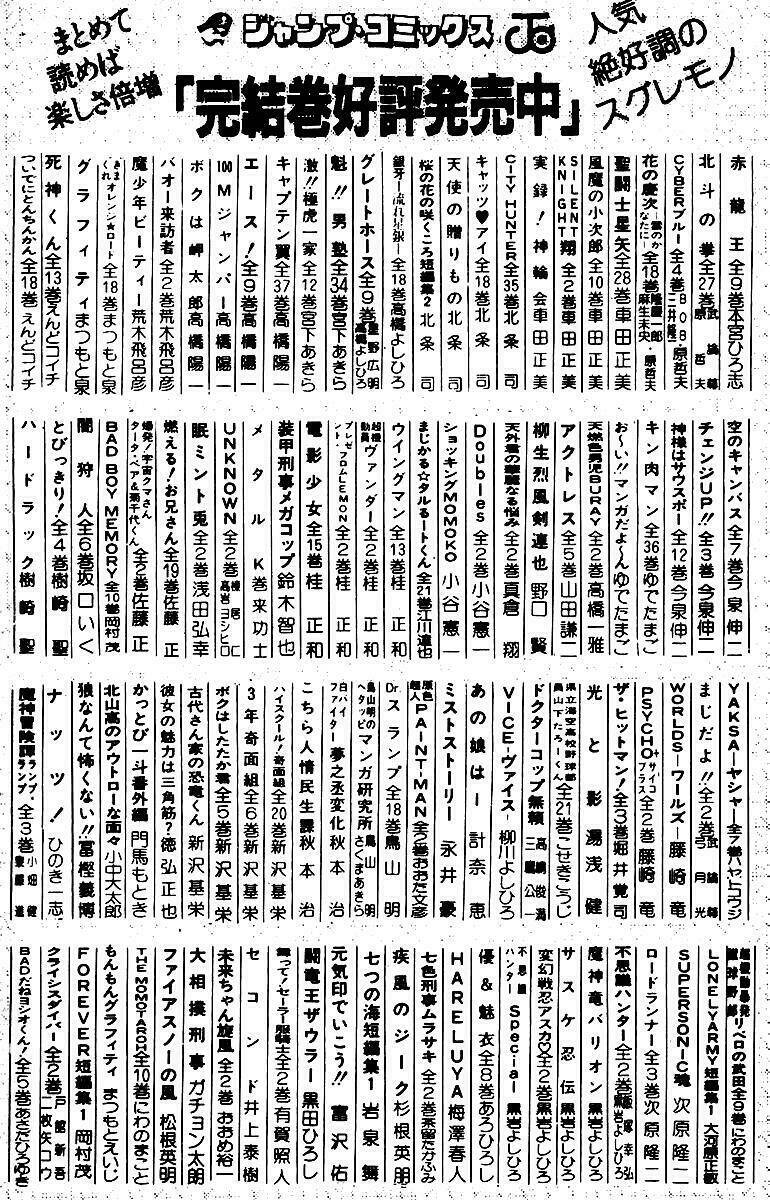 まとめて
読めば
楽しさ倍増
ジャンプ・コミックス
人気
絶好調の
スグレモノ
「完結巻好評発売中」
赤龍王 全9巻 本宮ひろ志
北斗の拳 全27巻 武論尊 原哲夫
CYBERブルー 全4巻 BOB・原哲夫 三井隆一
花の慶次―雲のかなたに― 全18巻 隆慶一郎・原哲夫 麻生未央
聖闘士星矢 全28巻 車田正美
風魔の小次郎 全10巻 車田正美
SILENT KNIGHT翔 全2巻 車田正美
実録!神輪会 車田正美
CITY HUNTER 全35巻 北条司
キャッツ♥アイ 全18巻 北条司
天使の贈りもの 北条司
桜の花の咲くころ 短編集2 北条司
銀牙―流れ星 銀― 全18巻 高橋よしひろ
グレートホース 全9巻 星野広明 高橋よしひろ
魁!!男塾 全34巻 宮下あきら
激!!極虎一家 全12巻 宮下あきら
キャプテン翼 全37巻 高橋陽一
エース! 全9巻 高橋陽一
100Mジャンパー 高橋陽一
ボクは岬太郎 高橋陽一
バオー来訪者 全2巻 荒木飛呂彦
魔少年ビーティー 荒木飛呂彦
きまぐれオレンジ★ロード 全18巻 まつもと泉
グラフィティ まつもと泉
死神くん 全13巻 えんどコイチ
ついでにとんちんかん 全18巻 えんどコイチ
空のキャンバス 全7巻 今泉伸二
チェンジUP!! 全3巻 今泉伸二
神様はサウスポー 全12巻 今泉伸二
キン肉マン 全36巻 ゆでたまご
お〜い!!マンガだよ〜ん ゆでたまご
天燃色男児BURAY 全2巻 高橋一雅
アクトレス 全5巻 山田謙二
柳生烈風剣連也 野口賢
天外君の華麗なる悩み 全2巻 真倉翔
Doubles 全2巻 小谷憲一
ショッキングMOMOKO 小谷憲一
まじかる☆タルるートくん 全21巻 江川達也
ウイングマン 全13巻 桂正和
超機動員ヴァンダー 全2巻 桂正和
プレゼント・フロムLEMON 全2巻 桂正和
電影少女 全15巻 桂正和
装甲刑事メガコップ 鈴木智也
メタルK 巻来功士
UNKNOWN 全2巻 棟居仁 高岩ヨシヒロ
眠ミント兎 全2巻 浅田弘幸
燃える!お兄さん 全19巻 佐藤正
爆発!宇宙クマさん タータ・ベア&菊千代くん 全2巻 佐藤正
BAD BOY MEMORY 全10巻 岡村茂
闇狩人 全6巻 坂口いく
とびっきり! 全4巻 樹崎聖
ハードラック 樹崎聖
YAKSA―ヤシャ― 全7巻 ハヤトコウジ
まじだよ!! 全2巻 武論尊 弓月光
WORLDS―ワールズ― 藤崎竜
PSYCHO+ サイコプラス 全2巻 藤崎竜
ザ・ヒットマン! 全3巻 堀井覚司
光と影 湯浅健
県立海空高校野球部員山下たろーくん 全21巻 こせきこうじ
ドクターコップ無頼 高嶋俊満 三鷹公一
VICE―ヴァイス― 柳川よしひろ
あの娘はー 計奈恵
ミストストーリー 永井豪
原色超人PAINT-MAN 全2巻 おおた文彦
Dr.スランプ 全18巻 鳥山明
鳥山明のヘタッピマンガ研究所 鳥山明 さくまあきら
白バイファイター 夢之丞変化 秋本治
こちら人情民生課 秋本治
ハイスクール!奇面組 全20巻 新沢基栄
3年奇面組 全6巻 新沢基栄
ボクはしたたか君 全5巻 新沢基栄
古代さん家の恐竜くん 新沢基栄
彼女の魅力は三角筋? 徳弘正也
かっとび一斗番外編 門馬もとき
北山高のアウトローな面々 小中大太郎
狼なんて怖くない!! 冨樫義博
ナッツ! ひのき一志
魔神冒険譚ランプ・ランプ 全3巻 小畑健 泉藤進
超機動暴発蹴球野郎リベロの武田 全9巻 にわのまこと
LONELY ARMY 短編集1 大河原正敏
SUPERSONIC魂 次原隆二
ロードランナー 全3巻 次原隆二
不思議ハンター 全2巻 飯塚幸弘 黒岩よしひろ
魔神竜バリオン 黒岩よしひろ
サスケ忍伝 黒岩よしひろ
変幻戦忍アスカ 全2巻 黒岩よしひろ
不思議ハンターSpecial 黒岩よしひろ
優&魅衣 全8巻 あろひろし
HARELUYA 梅澤春人
七色刑事ムラサキ 全2巻 茶留たかふみ
疾風のジーク 杉根英明
七つの海 短編集1 岩泉舞
元気印でいこう!! 富沢佑
闘竜王ザウラー 黒田ひろし
舞って!セーラー服騎士 全2巻 有賀照人
セコンド 井上泰樹
未来ちゃん旋風 全2巻 おおめ裕一
大相撲刑事 ガチョン太朗
ファイアスノーの風 松根英明
もんもんグラフィティ まつもとえいじ
THE MOMOTAROH 全10巻 にわのまこと
FOREVER 短編集1 岡村茂
クライシスダイバー 全2巻 戸館新吾 二枚矢コウ
BADだねヨシオくん! 全5巻 あさだひろゆき